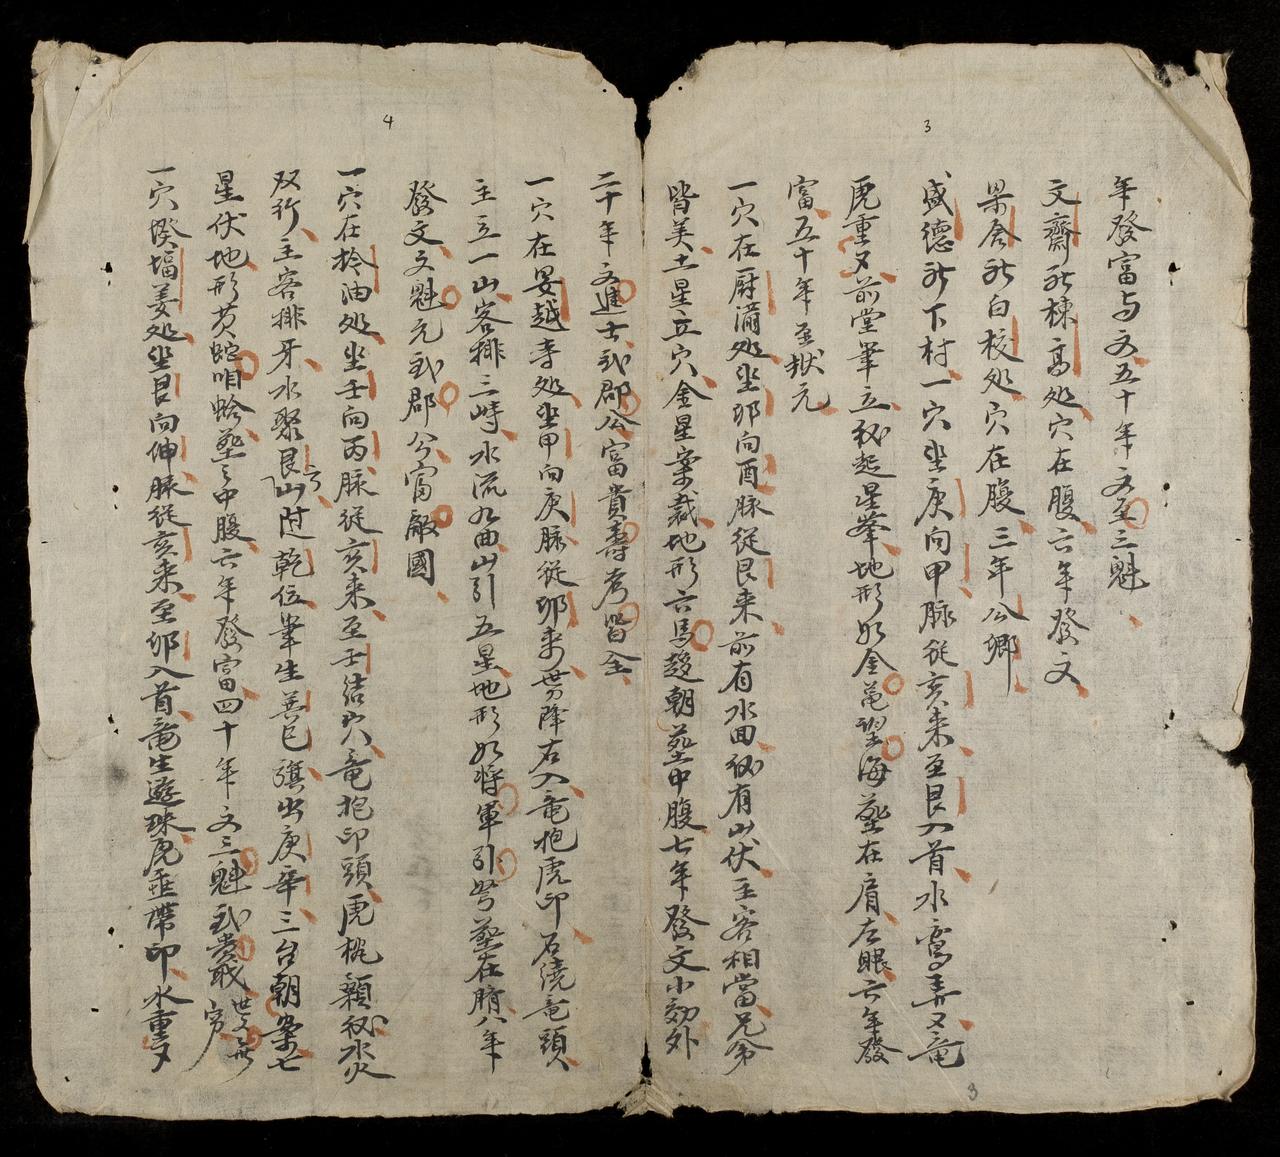 3
年發富与文五十年文至三魁
文齋社棟高処穴在腹六年發文
梁舍社白校処穴在腹三年公卿
盛德社下村一穴坐庚向甲脉從亥来至艮入首水弄又竜
虎重又前堂筆立後起星峯地形如金黾望海𦵏在肩左眼六年發
富五十年至狀元
一穴在厨浦処坐卯向酉脉從艮来前有水回後有山伏主客相當兄弟
皆美土星立穴金星案裁地形六馬趍朝𦵏中腹七年發文小効外
3
4
二十年文進士武郡公富貴壽考皆全
一穴在晏越寺処坐甲向庚脉從卯来势降右入竜抱虎印石遶竜頭
主立一山客排三峙水流九曲山引五星地形如将軍引弩𦵏在脐八年
發文文魁元武郡公富敵國
一穴在柃油処坐壬向丙脉從亥来至壬结穴竜抱印頭虎梔顙後水火
双行主客排牙水聚艮宮山附乾位筆生巽巳旗出庚辛三台朝案七
星伏地形黄蛇咱蛤𦵏之中腹六年發富四十年文三魁武貴職世文無
窮
一穴揆堛姜処坐艮向坤脉從亥来至卯入首竜生遊珠虎垂帶印水重又